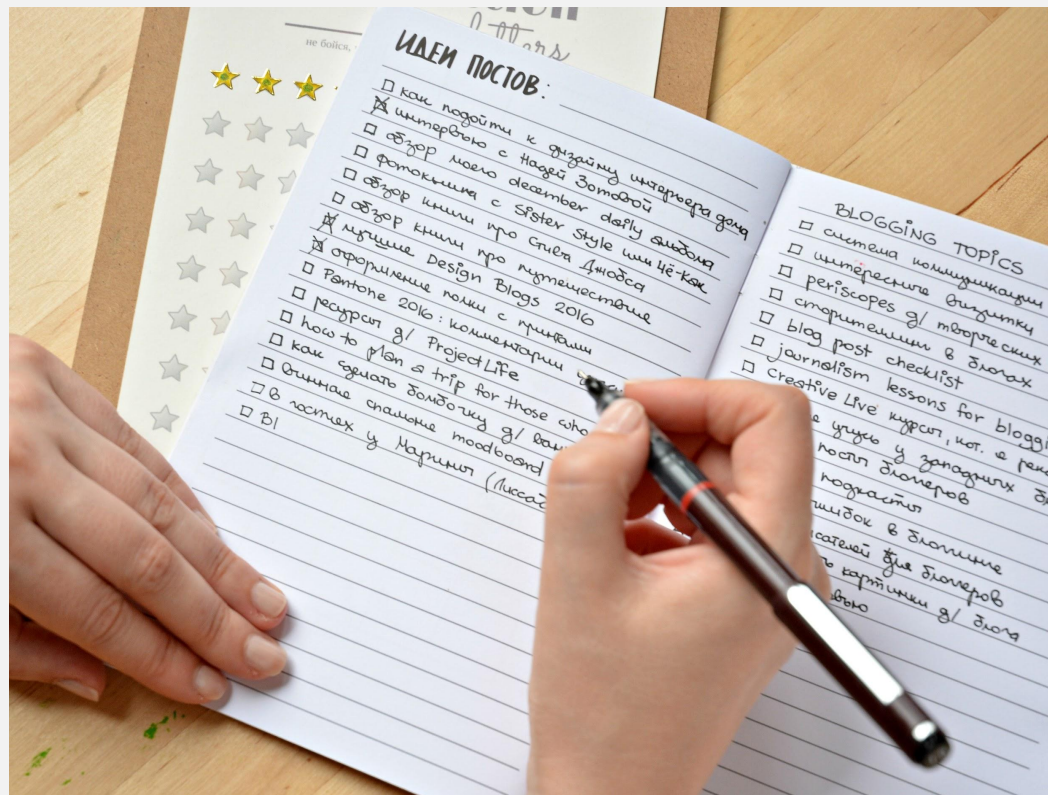 letters
не бойся,
ИДЕИ ПОСТОВ:
как подойти к дизайну интерьера дома
интервью с Надей Зотовой
обзор моего december daily альбома
фотокнига с Sister Style или Чё-Как
обзор книги про Стива Джобса
обзор книги про путешествие
лучшие Design Blogs 2016
оформление полки с принтами
Pantone 2016: комментарии
ресурсы д/ Project Life
how to plan a trip for those who
как сделать бомбочку д/
винные спальные moodboard
в гостях у Марины
BI
BLOGGING TOPICS
система коммуникации
интересные визитки
periscopes д/ творческих
сторителлинг в блогах
blog post checklist
journalism lessons for
creative Live курсы, кот. я
учусь у западных
посты блогеров
подкасты
в блоггинге
для блогеров
картинки д/ блога